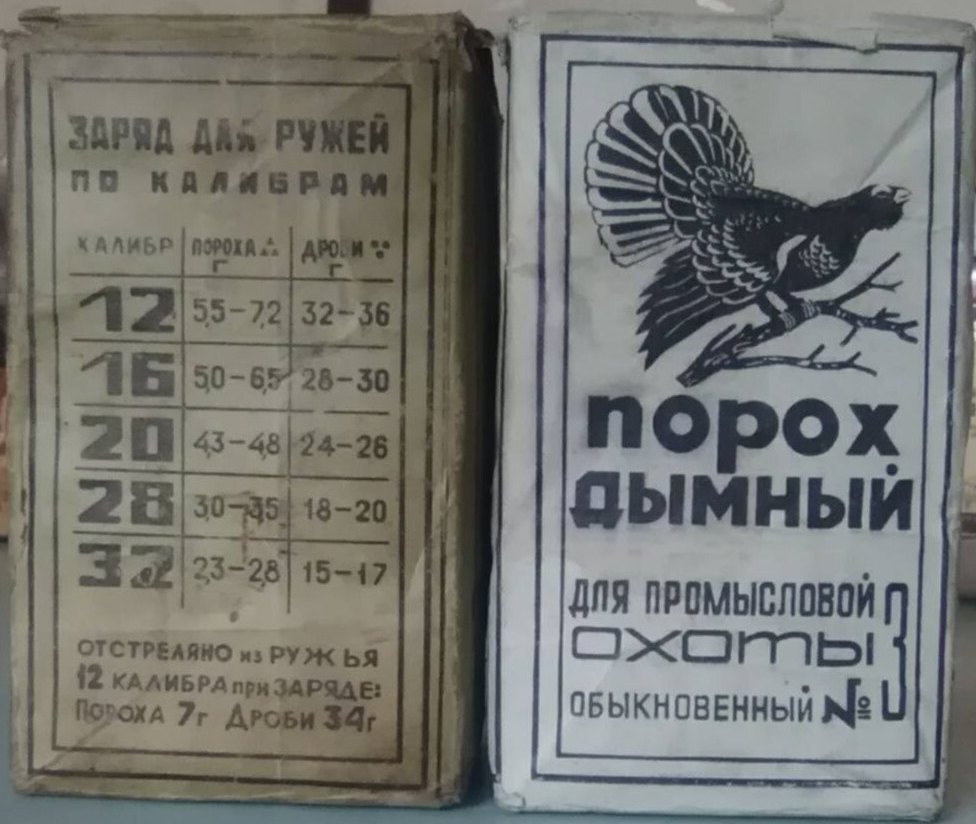 ЗАРЯД ДЛЯ РУЖЕЙ
ПО КАЛИБРАМ
КАЛИБР ПОРОХА Г ДРОБИ Г
12 5,5-7,2 32-36
16 5,0-6,5 28-30
20 4,3-4,8 24-26
28 3,0-3,5 18-20
32 2,3-2,8 15-17
ОТСТРЕЛЯНО из РУЖЬЯ
12 КАЛИБРА при ЗАРЯДЕ:
ПОРОХА 7г ДРОБИ 34г
порох
дымный
ДЛЯ ПРОМЫСЛОВОЙ
ОХОТЫ
ОБЫКНОВЕННЫЙ № 3